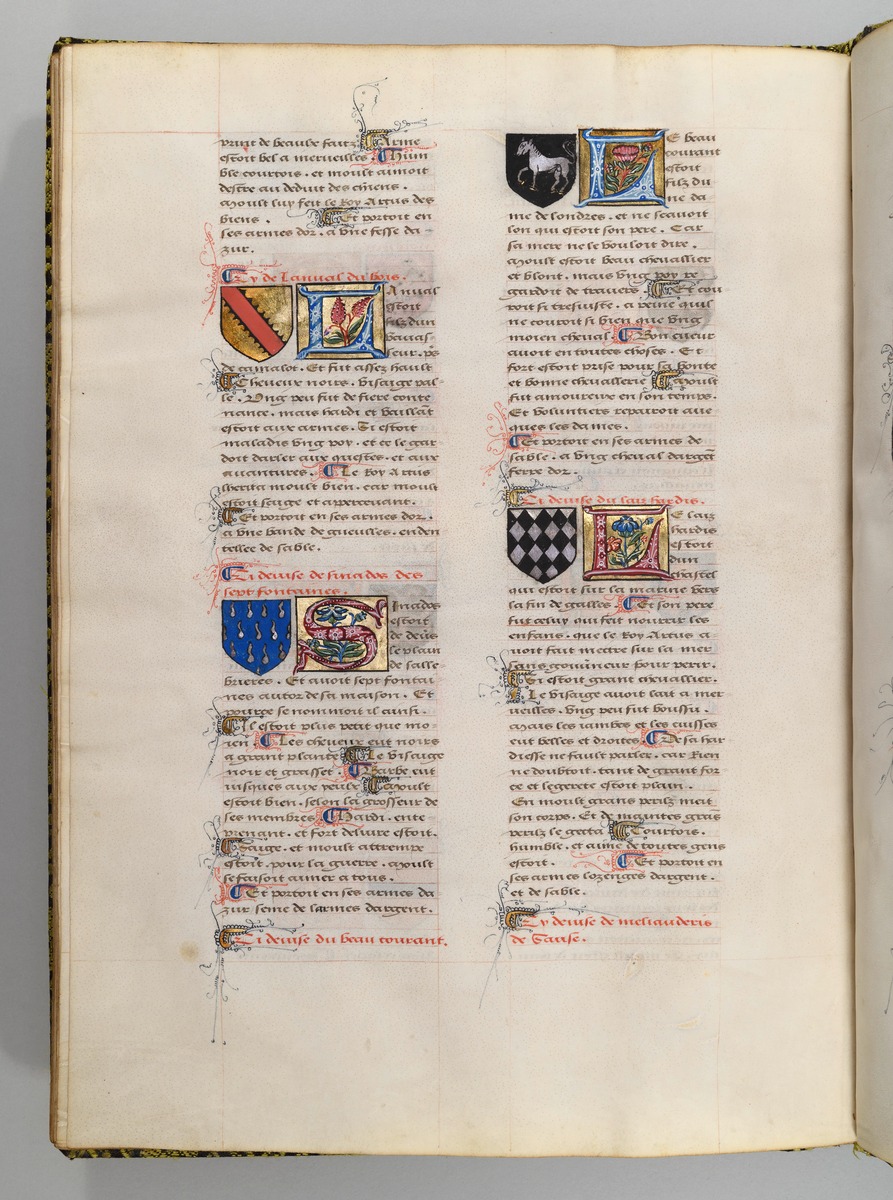 bruit de beaulx faitz. Larme
estoit bel a merueilles. Hum
ble courtois. et moult aimoit
destre au deduit des chiens.
Moult luy feit le Roy Artus des
biens. Et portoit en
ses armes dor. a vne fesse da
zur.
Cy de Lanual du bois.
Lanual
estoit
filz dun
vauas
seur. ps
de camalot. Et fut assez hault
Cheueux noirs. visaige pal
le. Vng peu fut de fiere conte
nance. mais hardi et vaillāt
estoit aux armes. Si estoit
maladis vng poy. et ce le gar
doit daler aux questes. et aux
auantures. Le Roy Artus
lherita moult bien. car moult
estoit saige et apperceuant.
Et portoit en ses armes dor.
a vne bande de gueulles. enden
tellee de sable.
Ci deuise de sinados des
sept fontaines.
Sinados
estoit
de deūs
le plain
de salle
brieres. Et auoit sept fontai
nes autor de sa maison. Et
pource se nommoit il ainsi.
Il estoit plus petit que mo
ien Les cheueux eut noirs
a grant plante Le visaige
noir et grasset. Barbe eut
iusques aux yeulx Moult
estoit bien. selon la grosseur de
ses membres Hardi. ente
prenant. et fort deliure estoit.
Saige. et moult attrempe
estoit. pour la guerre. Moult
se faisoit aimer a tous.
Et portoit en ses armes da
zur seme de larmes dargent.
Ci deuise du beau courant.
Le beau
courant
estoit
filz du
ne da
me de londres. et ne scauoit
lon qui estoit son pere. Car
sa mere ne le vouloit dire.
Moult estoit beau cheuallier
et blont. mais vng poy re
gardoit de trauers. Et cou
roit si tresuiste. a peine quil
ne couroit si bien que vng
moien cheual. Bon cueur
auoit en toutes choses. Et
fort estoit prise pour sa bonte
et bonne cheuallerie Moult
fut amoureux en son temps.
Et voluntiers repairoit aue
ques les dames.
Et portoit en ses armes de
sable. a vng cheual dargēt
ferre dor.
Ci deuise du laiz hardis.
Le laiz
hardis
estoit
dun
chastel
qui estoit sur la marine vers
la fin de gailles. Et son pere
fut celuy qui feit nourrir les
enfans. que le Roy Artus a
uoit fait mectre sur la mer
sans gouūneur pour perir.
Si estoit grant cheuallier.
Le visaige auoit lait a mer
ueilles. vng peu fut boussu.
Mais les iambes et les cuisses
eut belles et droites. De sa har
diesse ne fault parler. car Rien
ne doubtoit. tant de grant for
ce et legerete estoit plain.
En moult grans perilz meit
son corps. Et de maintes grās
perilz le gecta Courtois.
humble. et aime de toutes gens
estoit. Et portoit en
ses armes lozenges dargent.
et de sable.
Cy deuise de meliauderis
de Sanse.